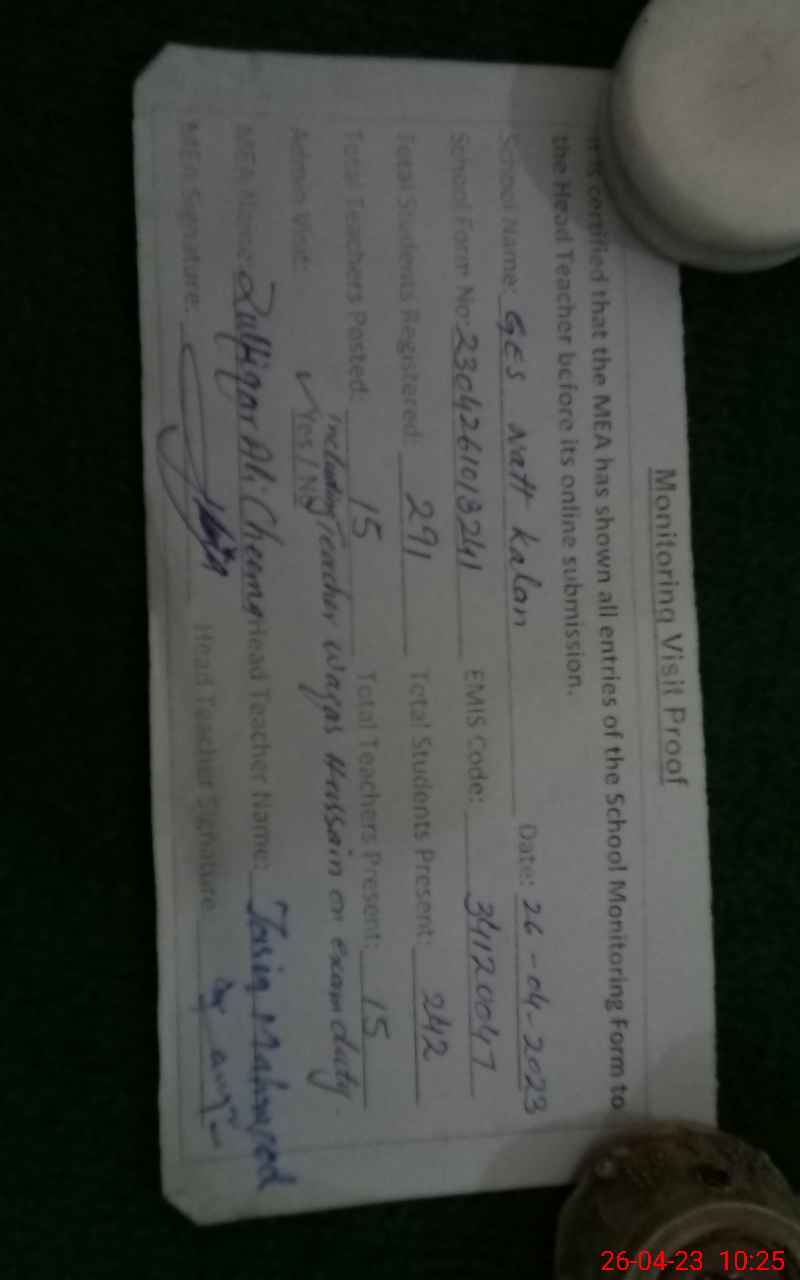 Monitoring Visit Proof
It is certified that the MEA has shown all entries of the School Monitoring Form to
the Head Teacher before its online submission.
School Name: GES Natt Kalan Date: 26-04-2023
School Form No: 2304261013241 EMIS Code: 34120047
Total Students Registered: 291 Total Students Present: 242
Total Teachers Posted: 15 Total Teachers Present: 15
including Teacher Waqas Hussain on exam duty.
Admin Visit: ✓ Yes / No
MEA Name: Zulfiqar Ali Cheema Head Teacher Name: Mahmood
MEA Signature: Head Teacher Signature
26-04-23 10:25